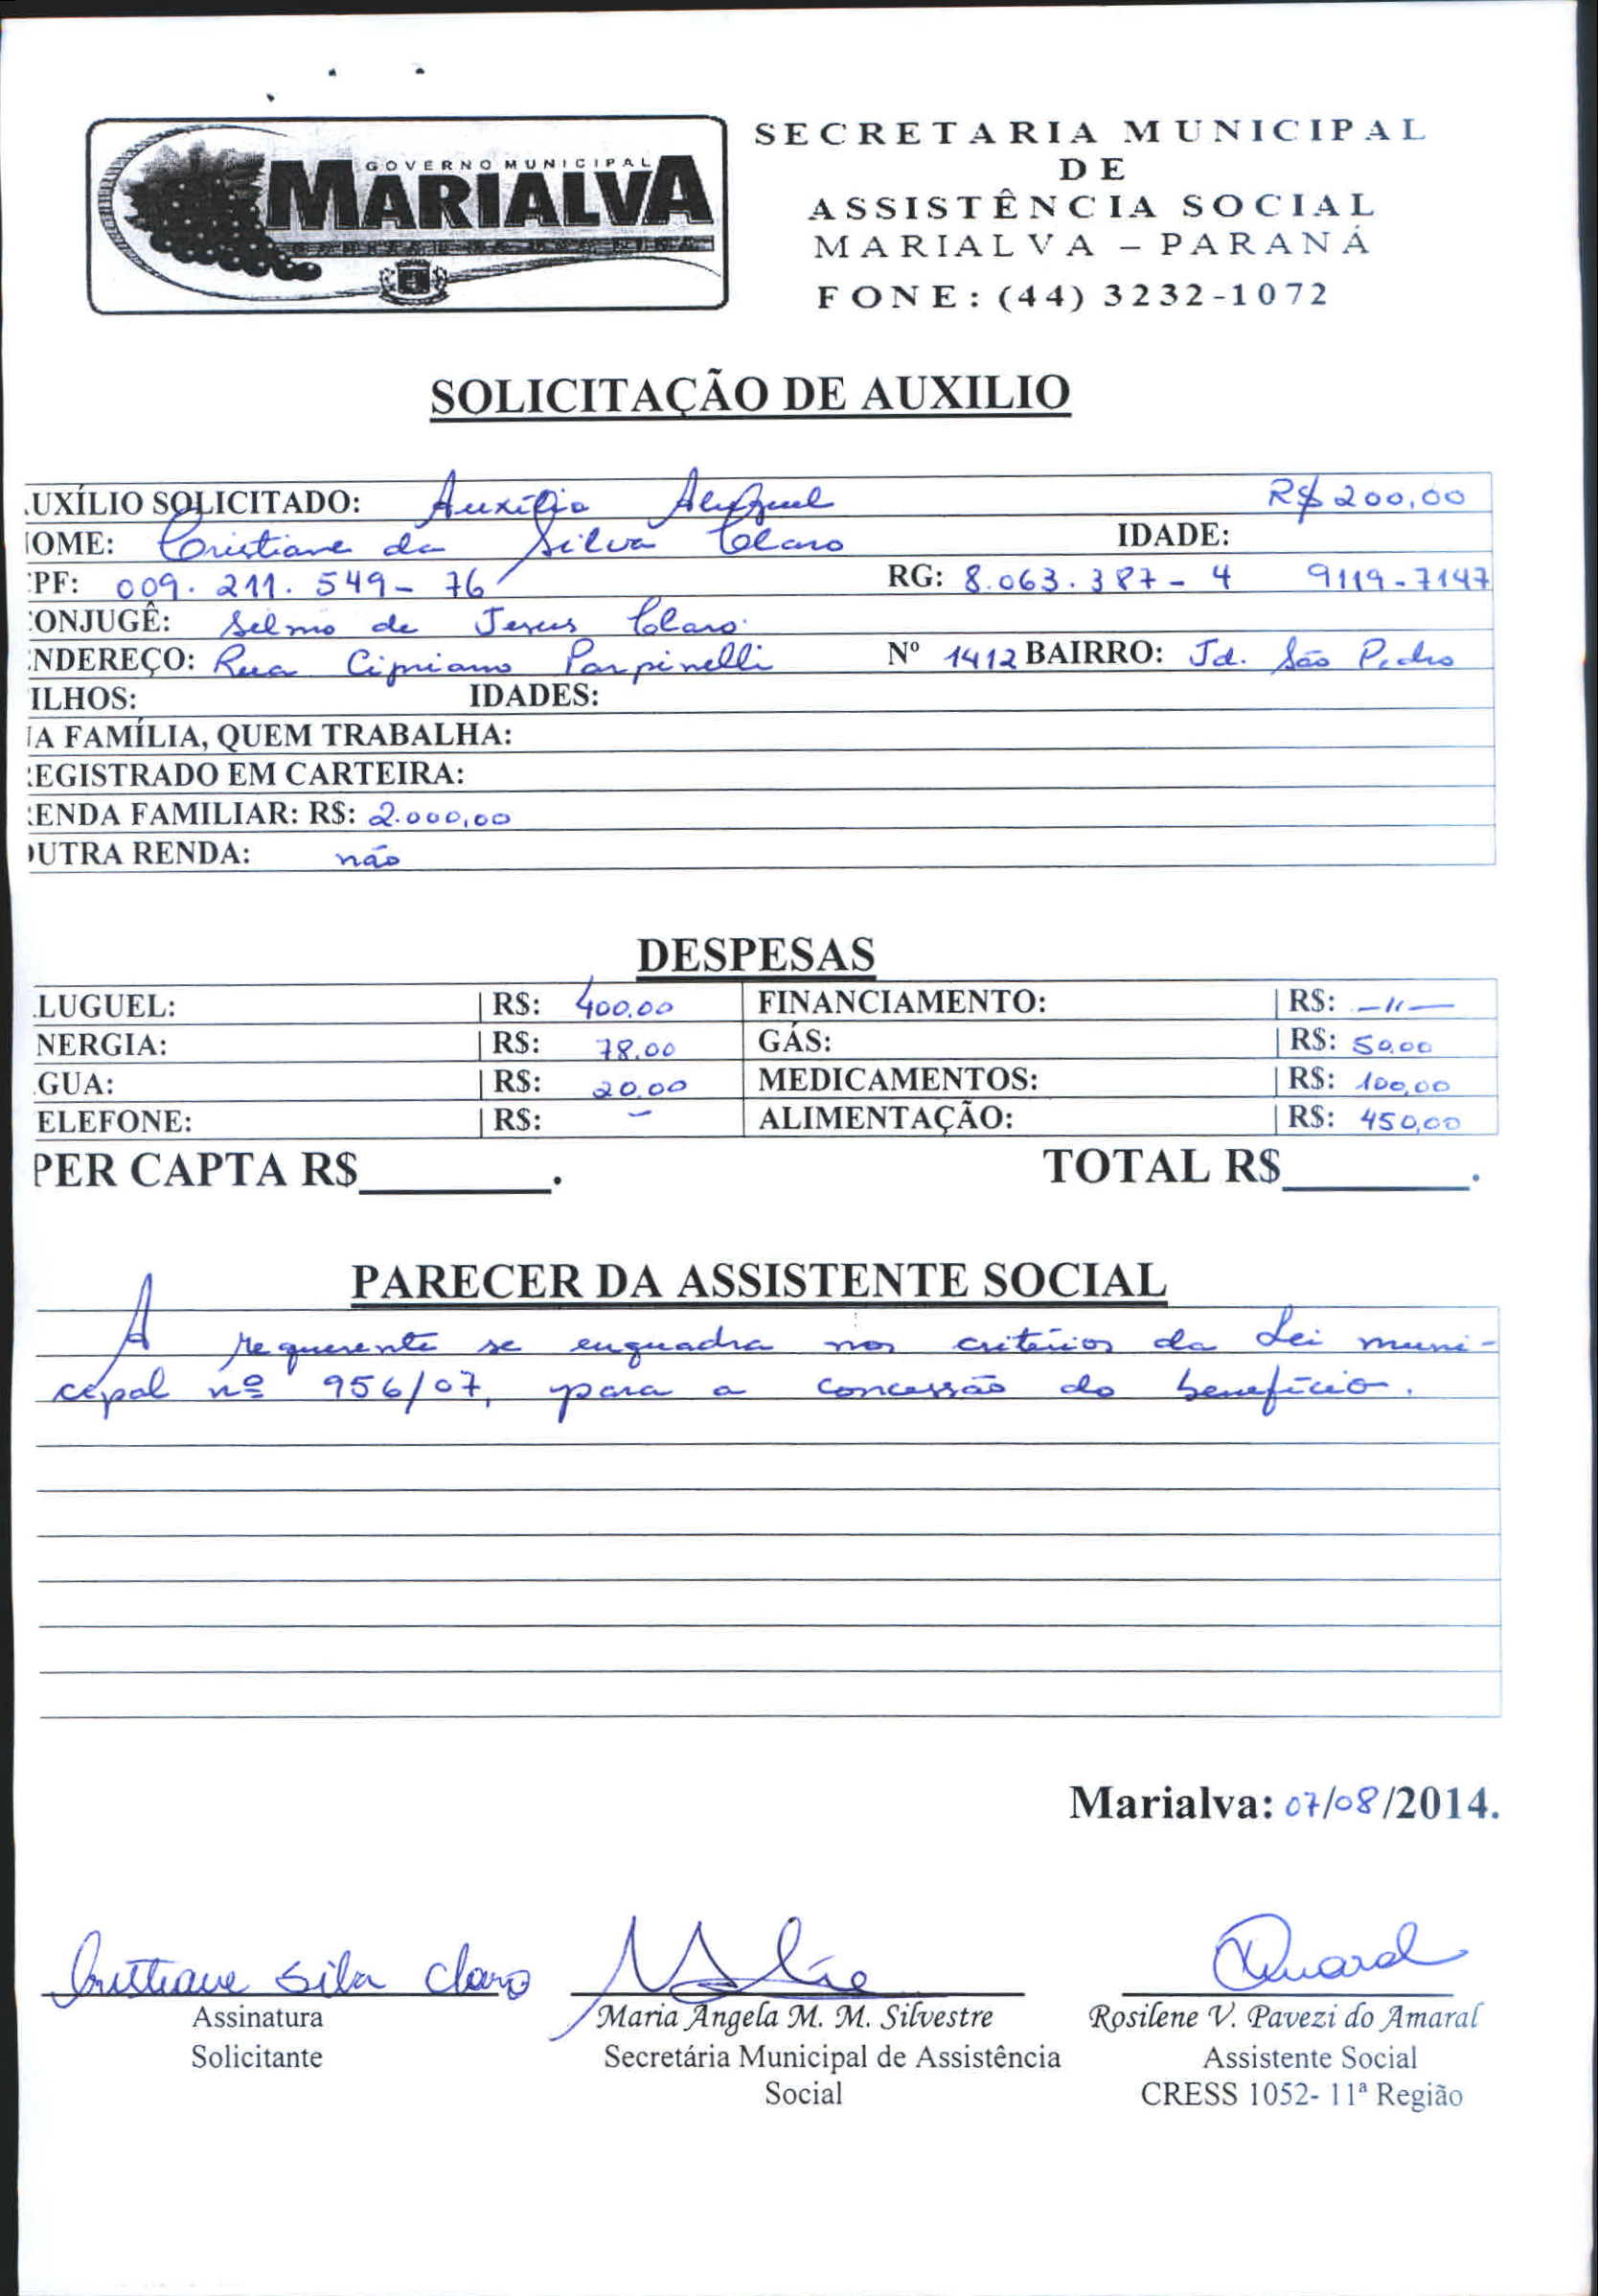 GOVERNO MUNICIPAL
MARIALVA
SECRETARIA MUNICIPAL
DE
ASSISTÊNCIA SOCIAL
MARIALVA – PARANÁ
FONE: (44) 3232-1072
SOLICITAÇÃO DE AUXILIO
UXÍLIO SOLICITADO: Auxílio Aluguel R$ 200,00
OME: Cristiane da Silva Claro IDADE:
PF: 009.211.549-76 RG: 8.063.387-4 9119-7147
ONJUGÊ: Selmo de Jesus Claro.
NDEREÇO: Rua Cipriano Parpinelli Nº 1412 BAIRRO: Jd. São Pedro
ILHOS: IDADES:
A FAMÍLIA, QUEM TRABALHA:
EGISTRADO EM CARTEIRA:
ENDA FAMILIAR: R$: 2.000,00
UTRA RENDA: não
DESPESAS
LUGUEL: R$: 400,00 FINANCIAMENTO: R$: –11–
NERGIA: R$: 78,00 GÁS: R$: 50,00
GUA: R$: 20,00 MEDICAMENTOS: R$: 100,00
ELEFONE: R$: – ALIMENTAÇÃO: R$: 450,00
PER CAPTA R$________. TOTAL R$________.
PARECER DA ASSISTENTE SOCIAL
A requerente se enquadra nos critérios da Lei muni-
cipal nº 956/07, para a concessão do benefício.
Marialva: 07/08/2014.
Cristiane Silva Claro
Assinatura
Solicitante
Maria Ângela M. M. Silvestre
Secretária Municipal de Assistência
Social
Amaral
Rosilene V. Pavezi do Amaral
Assistente Social
CRESS 1052- 11ª Região